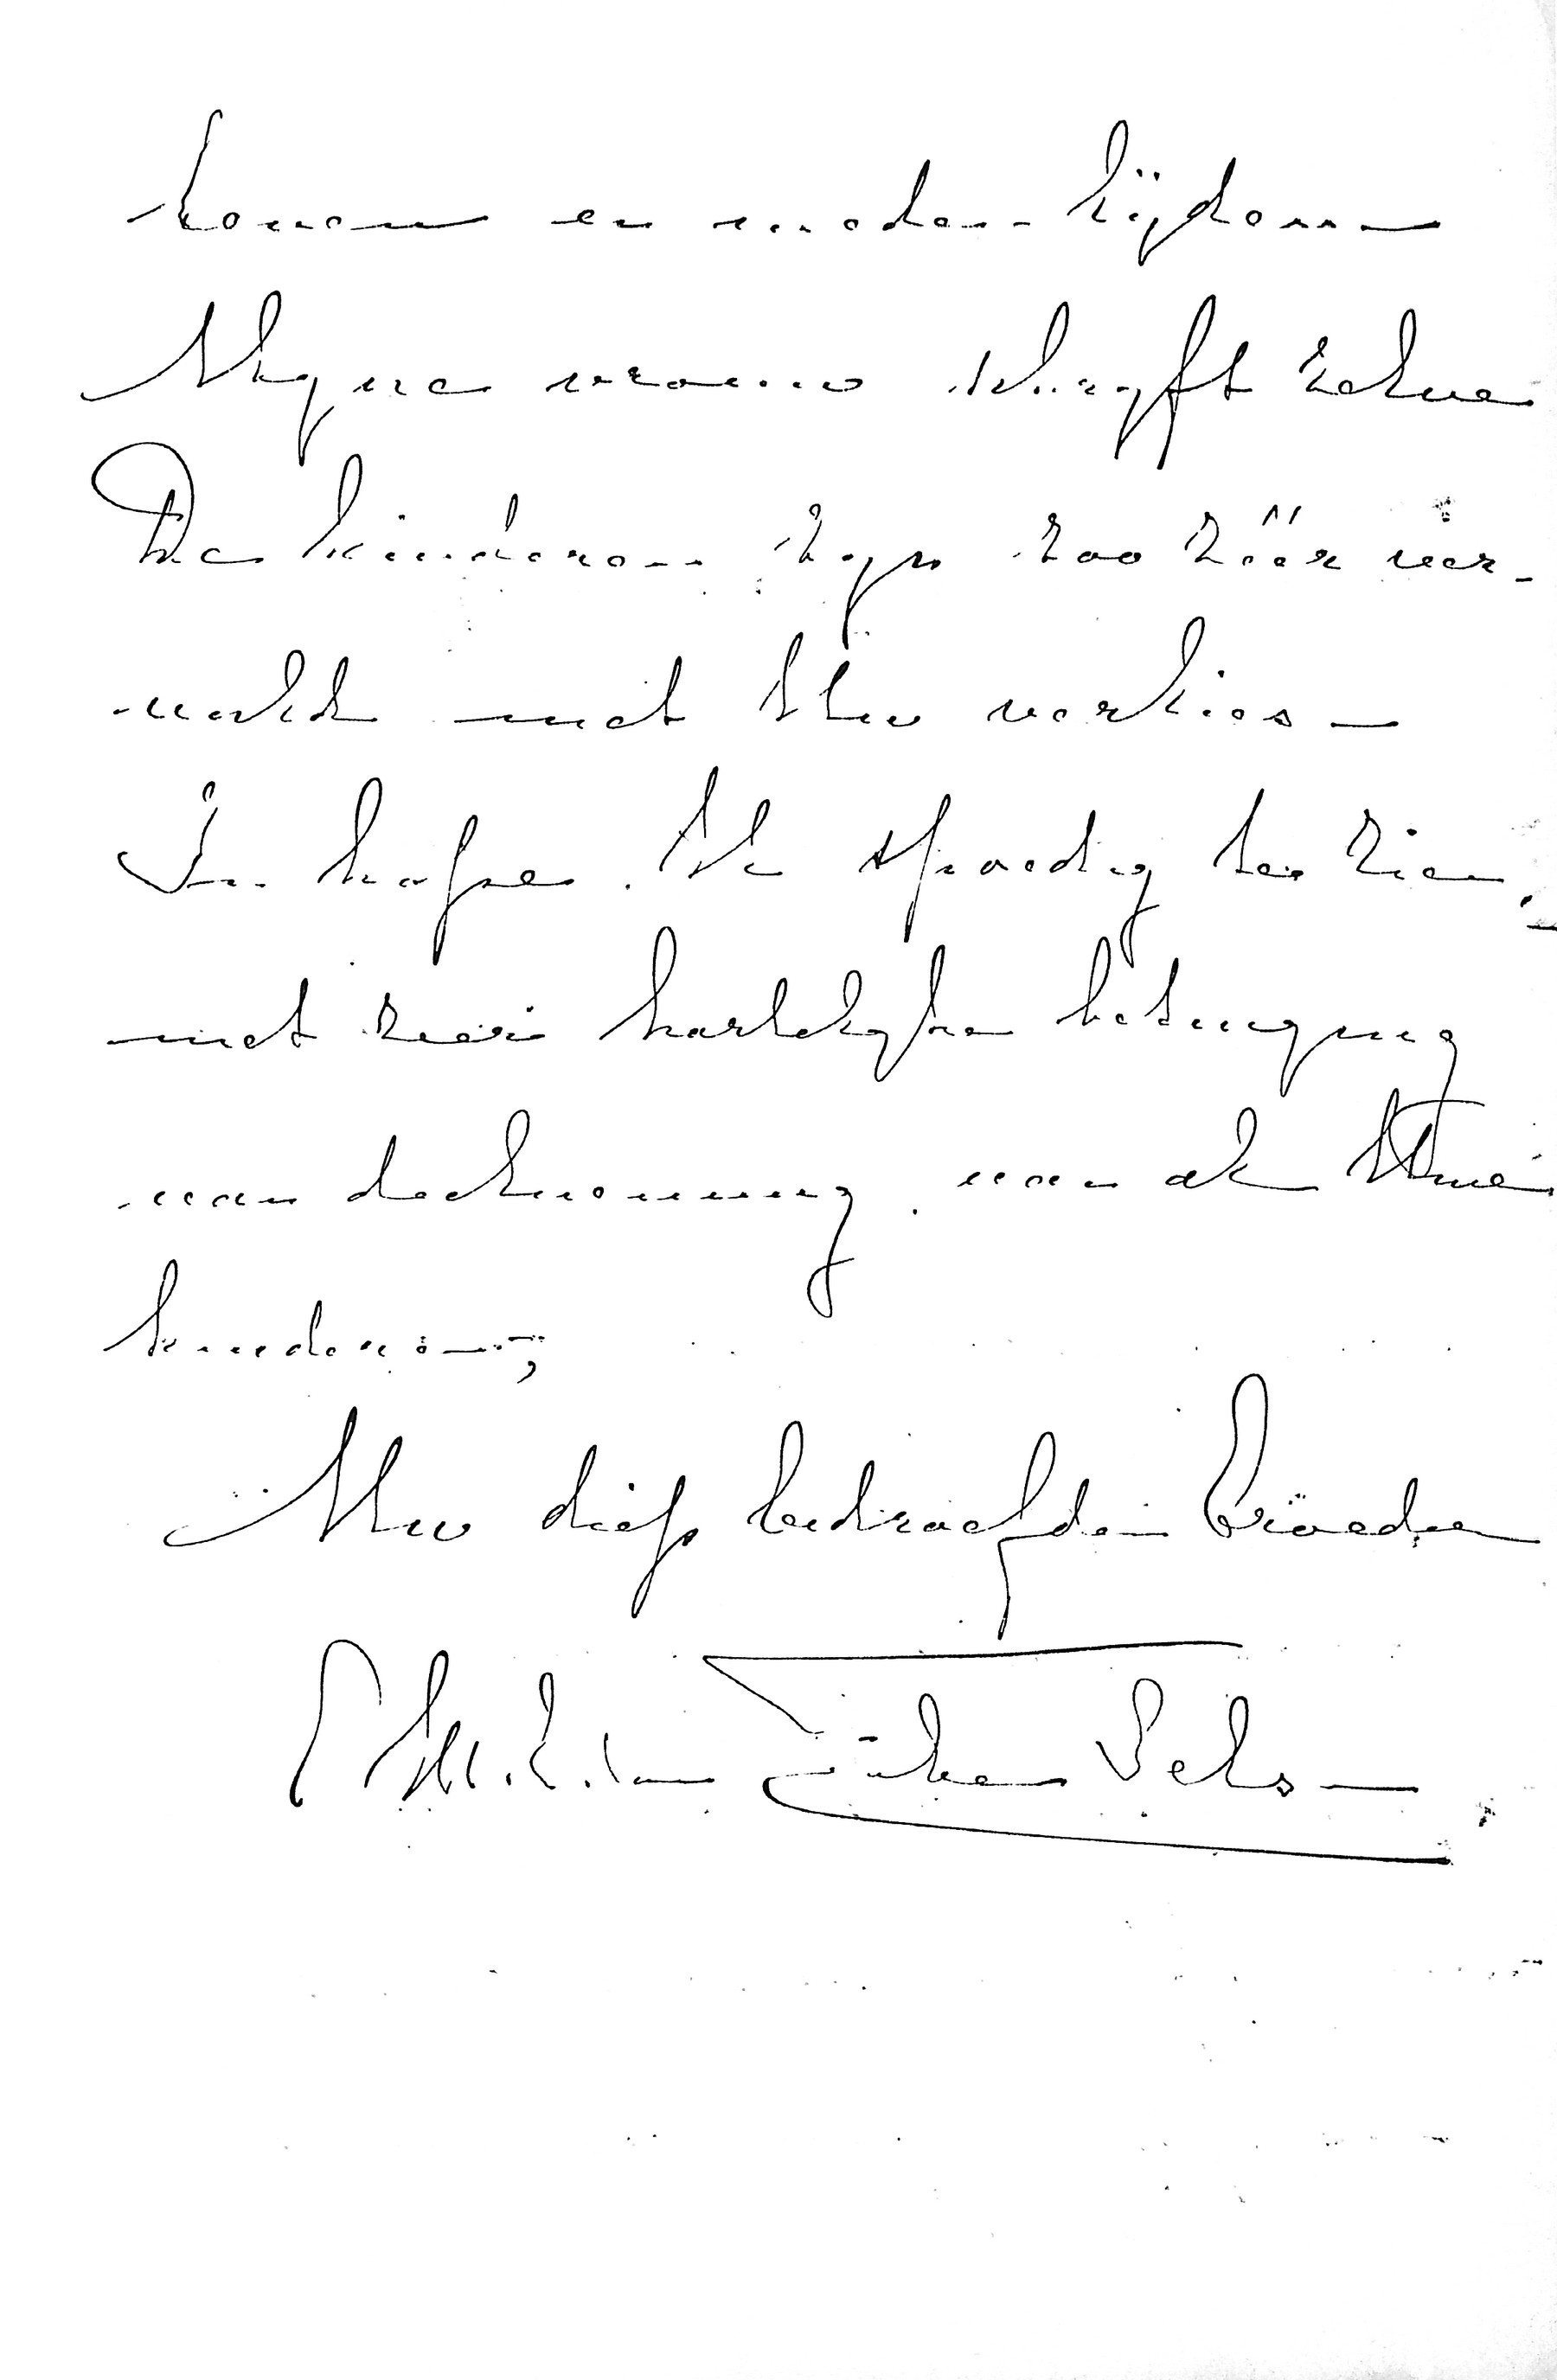 lonen en neder lijden —
Mijne vrouw schrijft zelve
De kinderen zijn zoo zéér ver-
vuld met Uw verlies —
In hope U spoedig te zien,
met zeer hartelijke betuiging
van deelneming van al Uwe
kinderen,
Uw diep bedroefden Broeder
van Sels